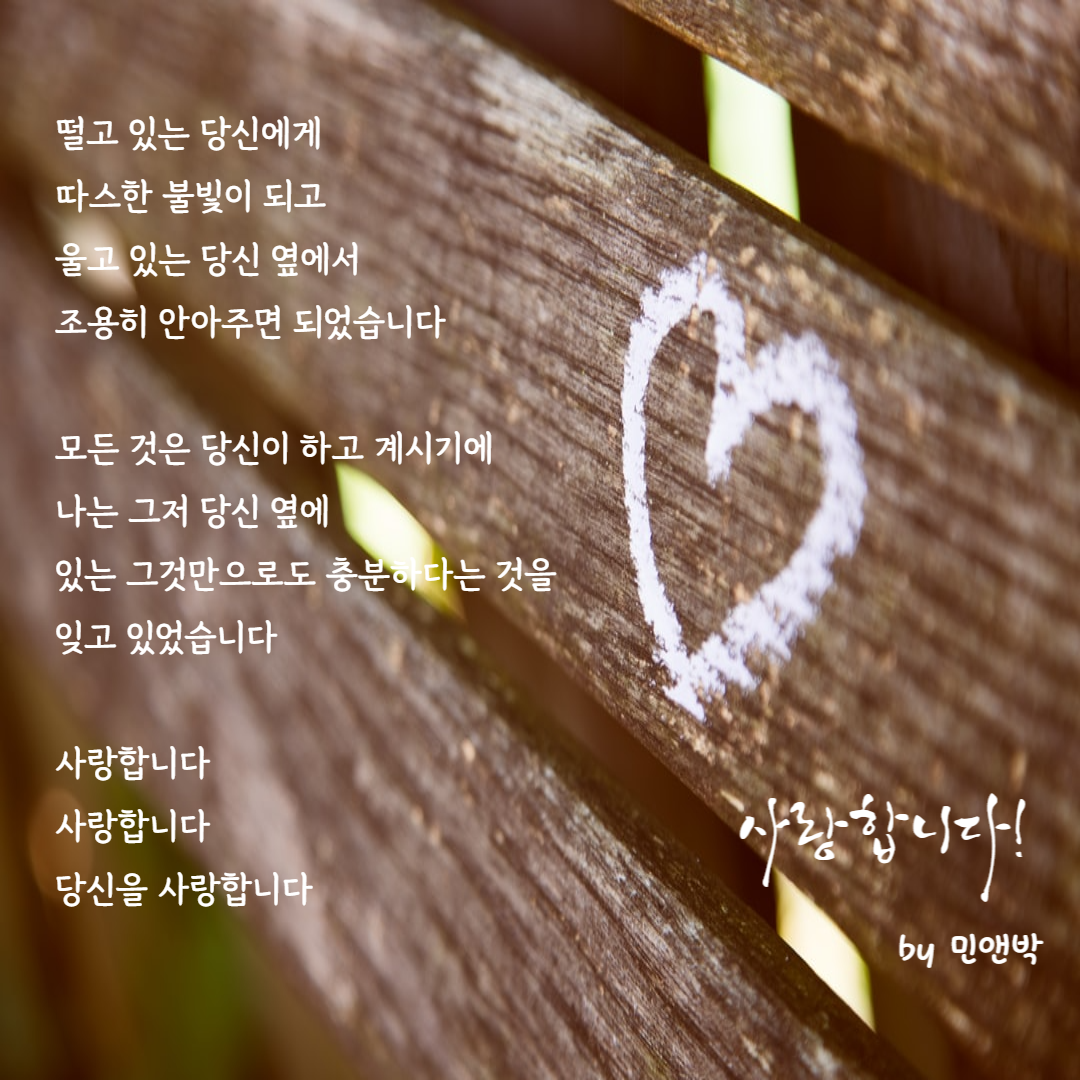 떨고 있는 당신에게
따스한 불빛이 되고
울고 있는 당신 옆에서
조용히 안아주면 되었습니다
모든 것은 당신이 하고 계시기에
나는 그저 당신 옆에
있는 그것만으로도 충분하다는 것을
잊고 있었습니다
사랑합니다
사랑합니다
당신을 사랑합니다
사랑합니다!
by 민앤박